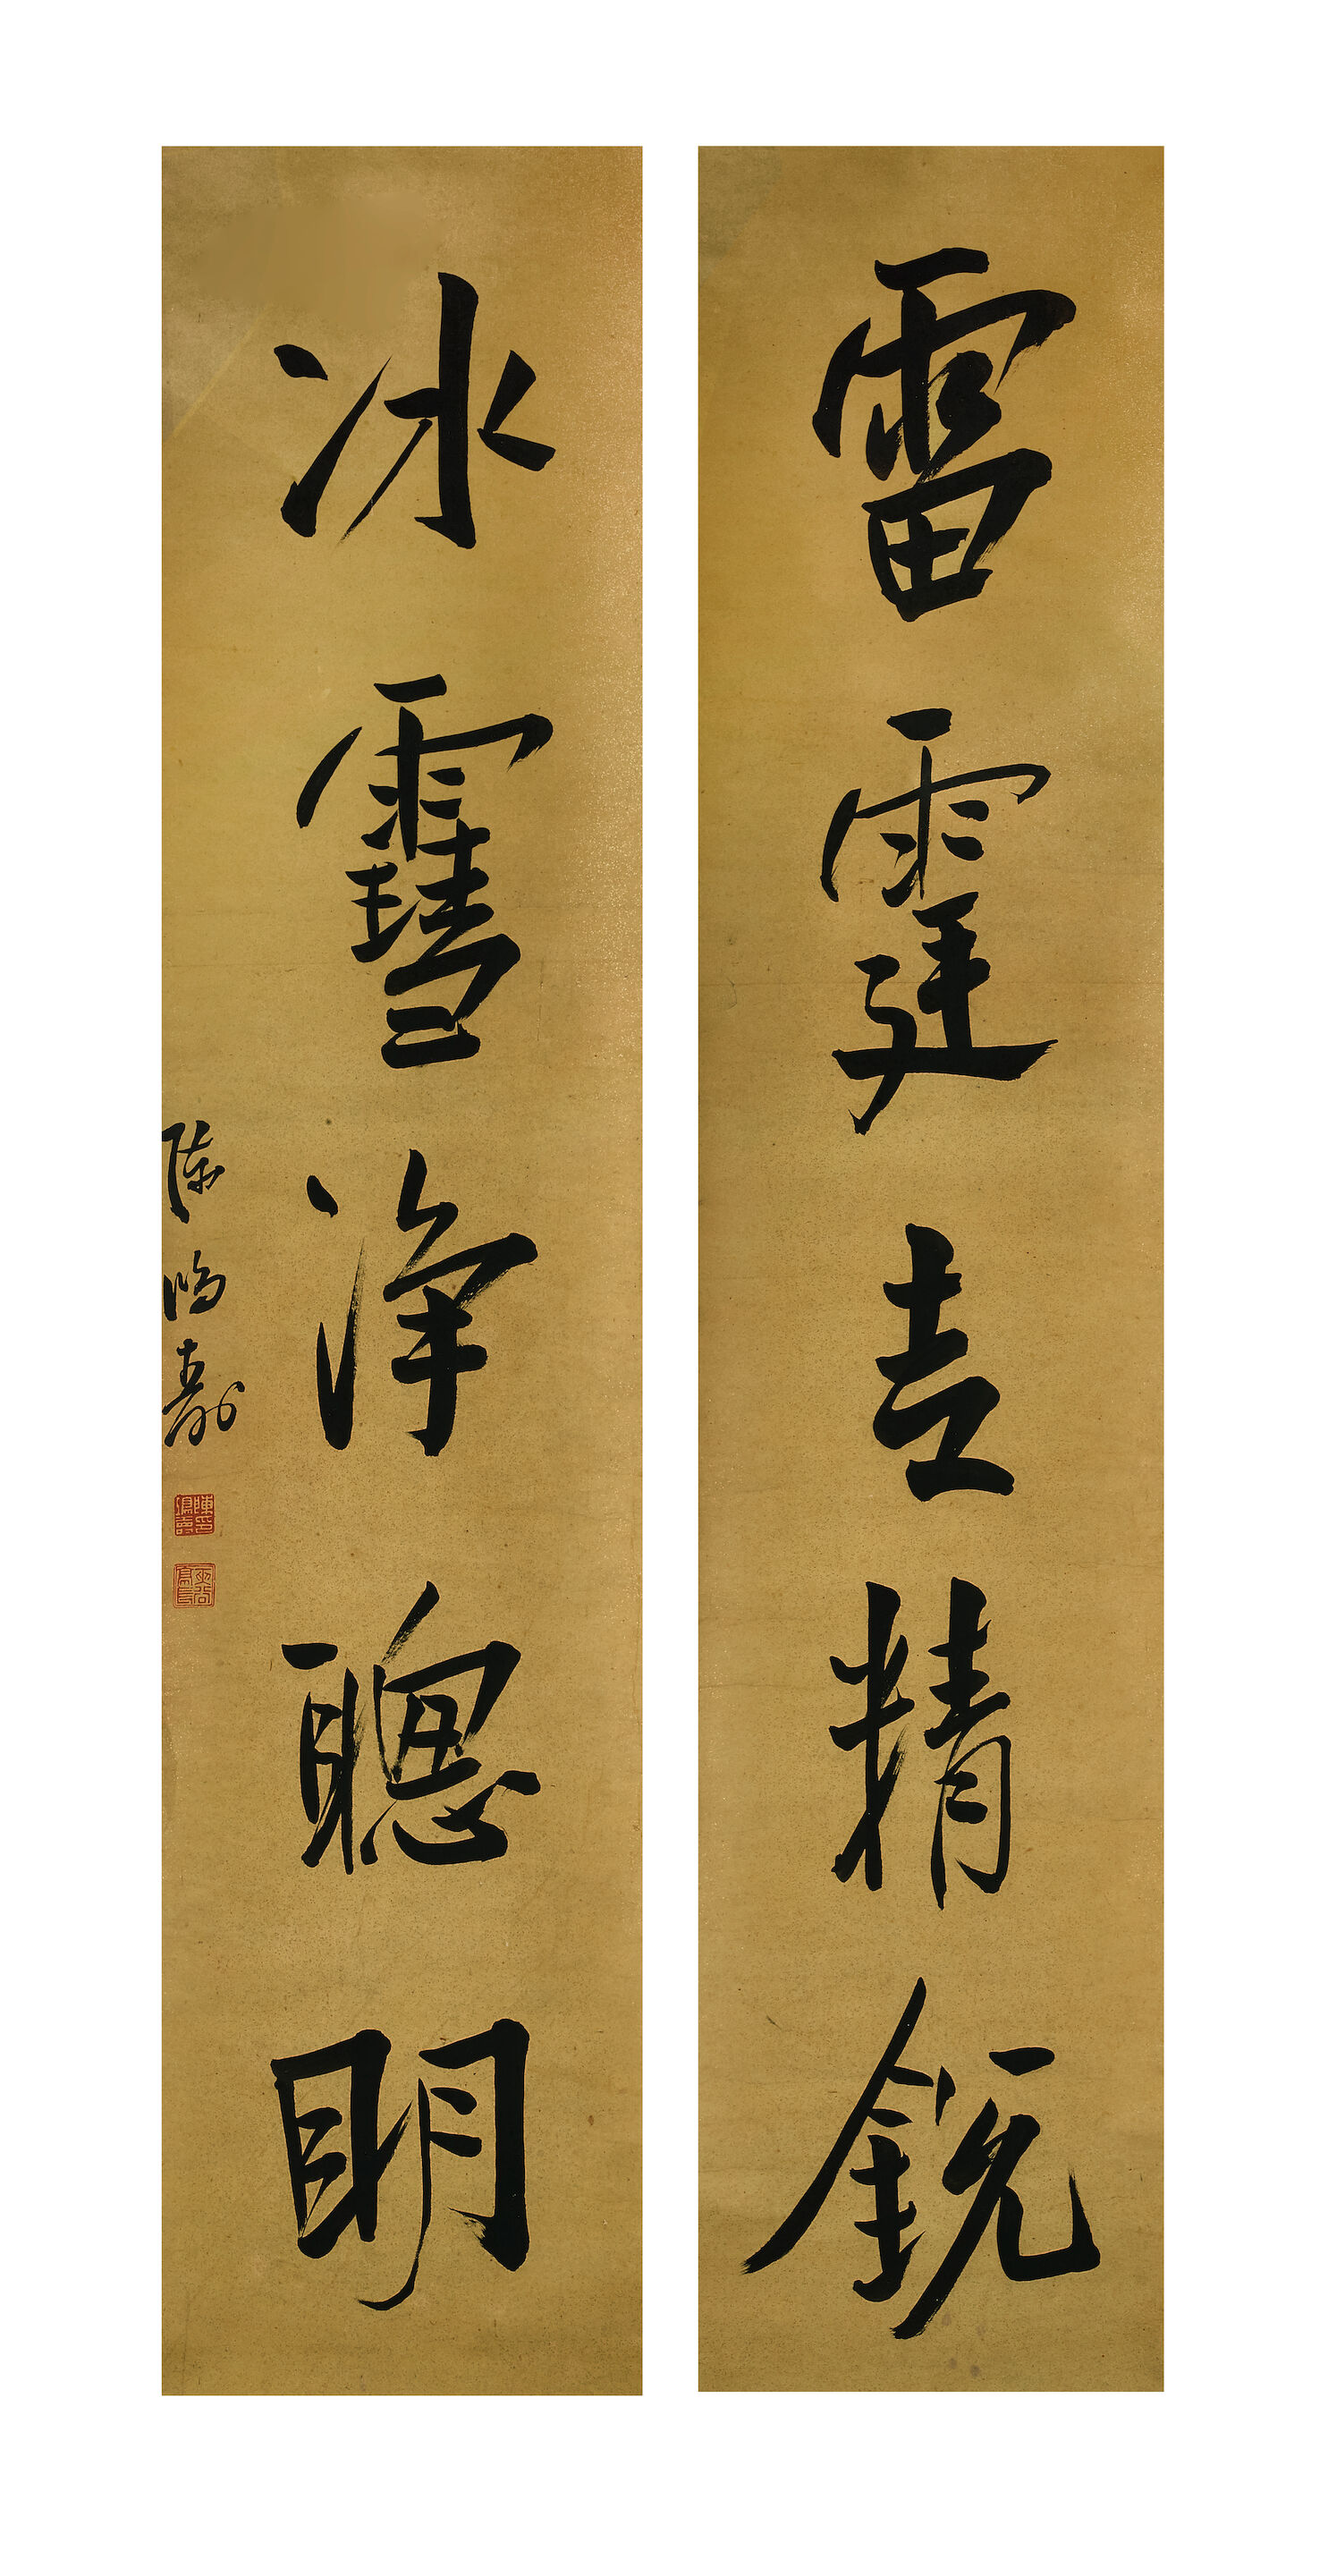 雷霆走精銳
冰雪淨聰明
陳鴻壽
陳鴻壽印